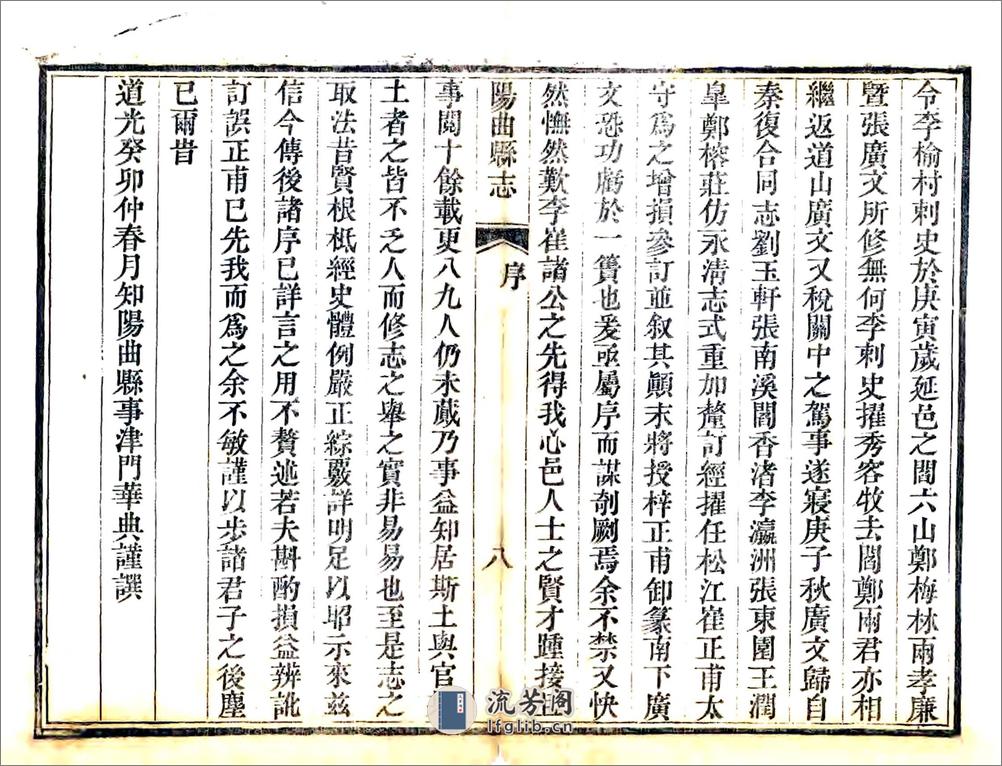 令李榆村刺史於庚寅歲延邑之閻六山鄭梅林兩孝廉
暨張廣文所修無何李刺史擢秀容牧去閻鄭兩君亦相
繼返道山廣文又稅關中之駕事遂寢庚子秋廣文歸自
秦復合同志劉玉軒張南溪閻香渚李瀛洲張東園王潤
皐鄭榕莊仿永清志式重加釐訂經擢任松江崔正甫太
守爲之增損參訂並叙其顚末將授梓正甫卸篆南下廣
文恐功虧於一簣也爰亟屬序而謀剞劂焉余不禁又快
然憮然歎李崔諸公之先得我心邑人士之賢才踵接
陽曲縣志
序
八
事閱十餘載更八九人仍未蕆乃事益知居斯土與官
土者之皆不乏人而修志之舉之實非易易也至是志之
取法昔賢根柢經史體例嚴正綜覈詳明足以昭示來兹
信今傳後諸序已詳言之用不贅述若夫斟酌損益辨訛
訂誤正甫已先我而爲之余不敏謹以步諸君子之後塵
已爾旹
道光癸卯仲春月知陽曲縣事津門華典謹譔
流芳阁
lfglib.cn